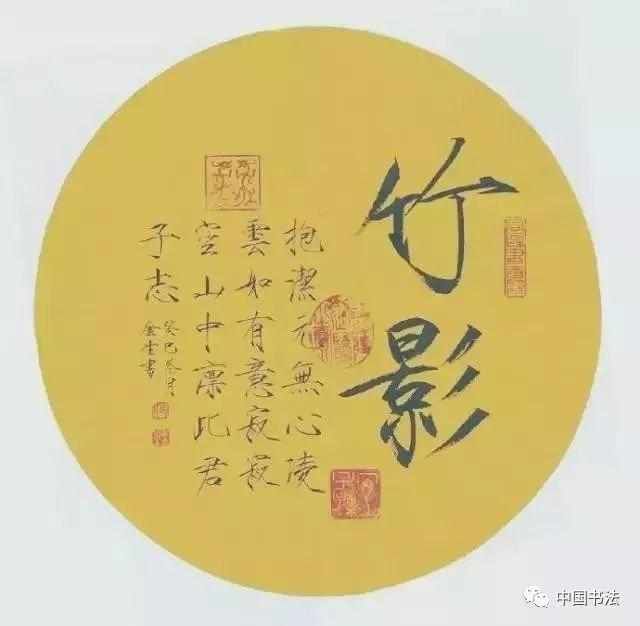 竹影
抱潔元無心凌
雲如有意寂寂
空山中凛此君
子志
癸巳冬月
金生書
中国书法